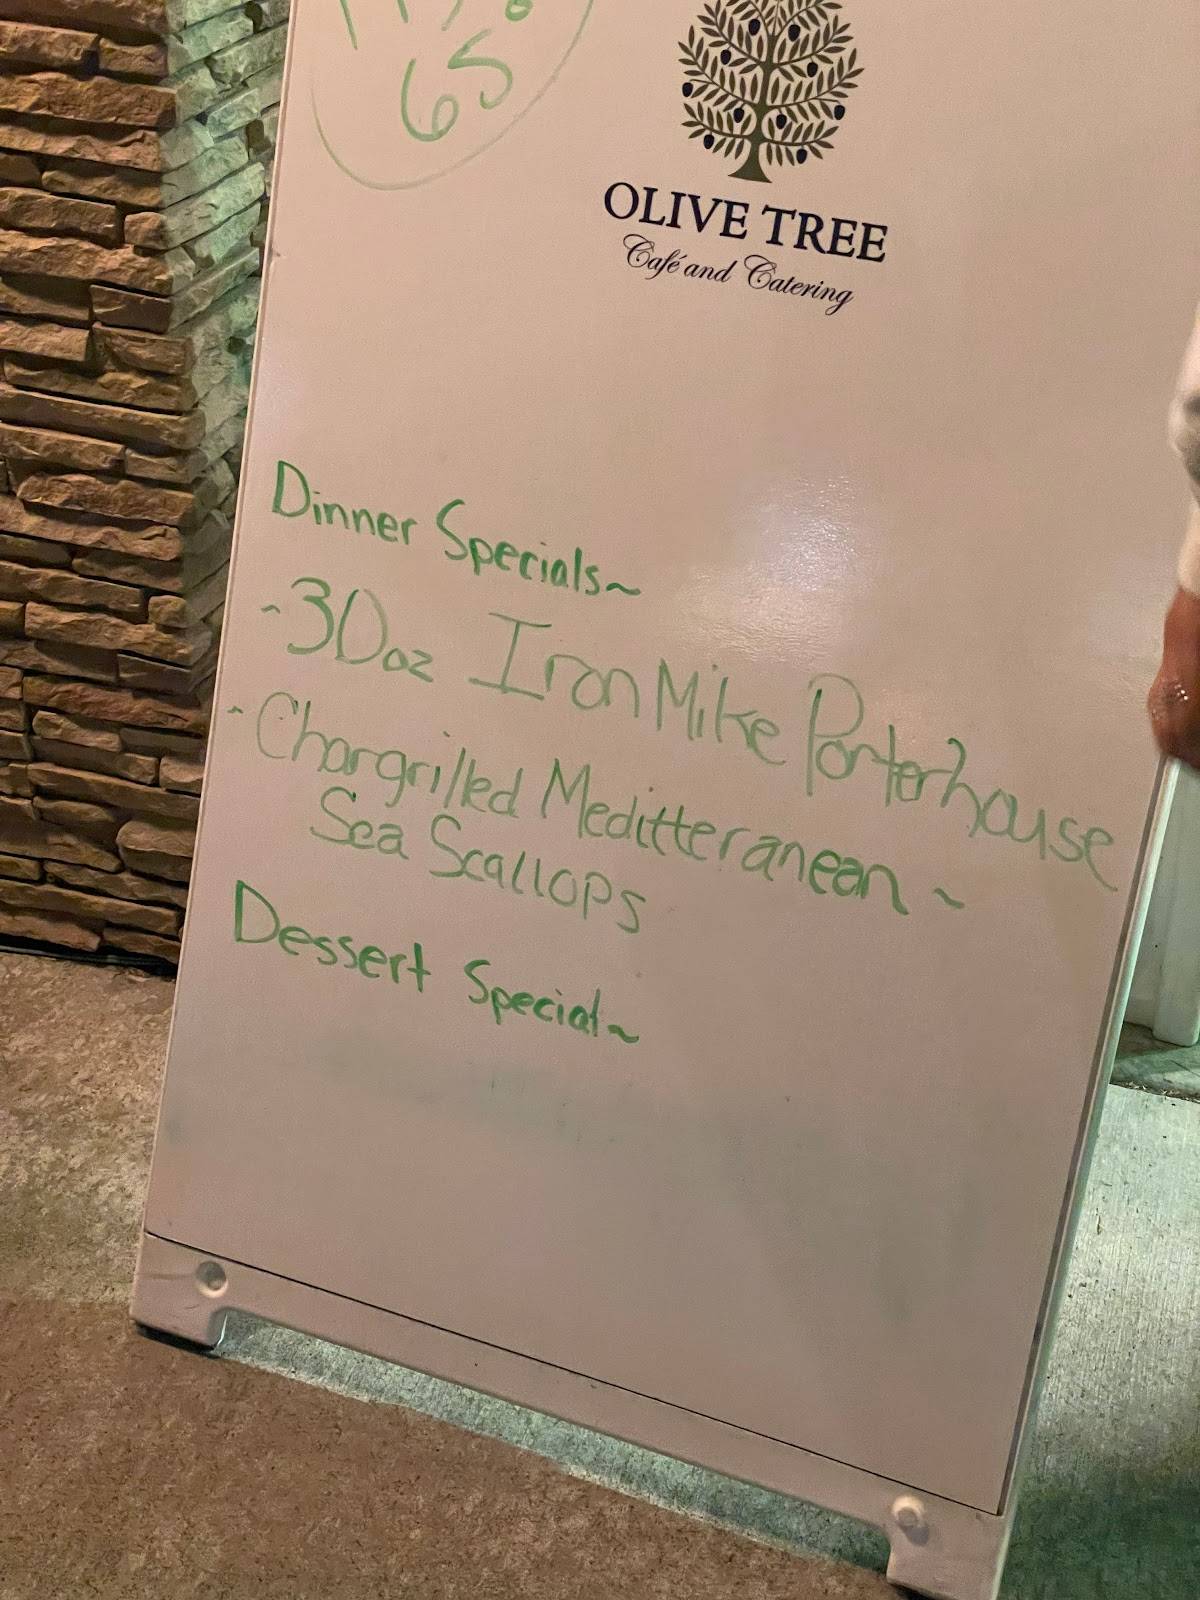 65
OLIVE TREE
Café and Catering
Dinner Specials~
-30oz Iron Mike Porterhouse
-Chargrilled Meditteranean~
Sea Scallops
Dessert Special~